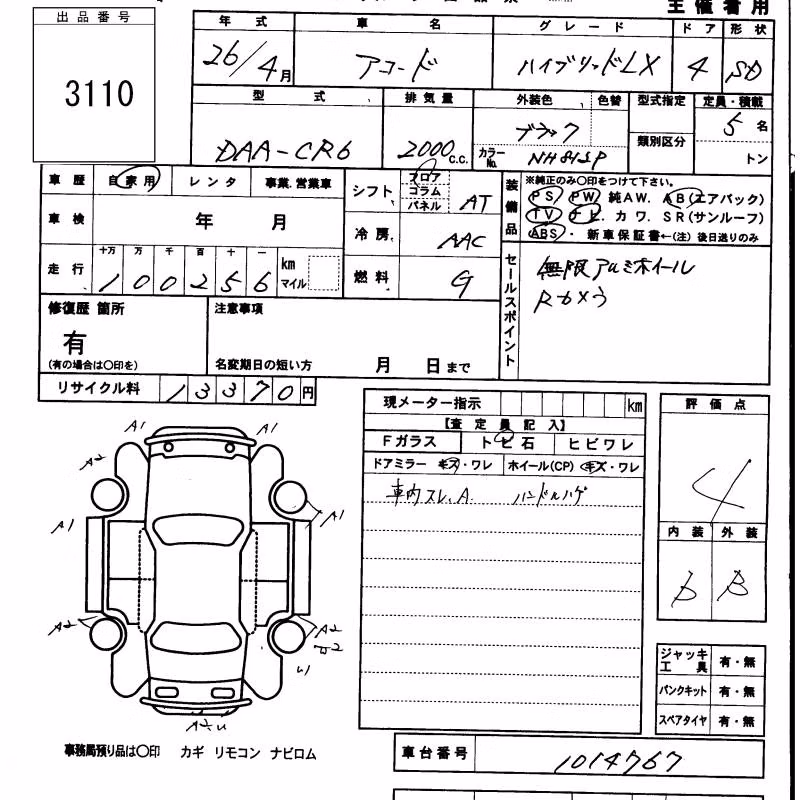 主催者用
出品番号
3110
年式 車名 グレード ドア 形状
26/4月 アコード ハイブリッドLX 4 SD
型式 排気量 外装色 色替 型式指定 定員・積載
DAA-CR6 2000c.c. ブラック 類別区分 5名
カラーNo. NH812P トン
車歴 自家用 レンタ 事業.営業車 シフト フロア コラム パネル AT
装備品 ※純正のみ〇印をつけて下さい。
PS PW 純AW. AB(エアバック)
TV ナビ. カワ. SR(サンルーフ)
ABS・ 新車保証書←(注) 後日送りのみ
車検 年 月 冷房 AAC
走行 十万 万 千 百 十 一
100256 km マイル 燃料 G
セールスポイント 無限アルミホイール
Rカメラ
修復歴 箇所 注意事項
有
(有の場合は〇印を) 名変期日の短い方 月 日まで
リサイクル料 13370円
現メーター指示 km
【査定員記入】
Fガラス トビ石 ヒビワレ
ドアミラー キズ・ワレ ホイール(CP) キズ・ワレ
車内スレ.A. ハンドルハゲ
評価点
4
内装 外装
b B
A1 A1
A2
A1 A1
A2 A2
B2
ジャッキ工具 有・無
パンクキット 有・無
スペアタイヤ 有・無
事務局預り品は〇印 カギ リモコン ナビロム
車台番号 1014767